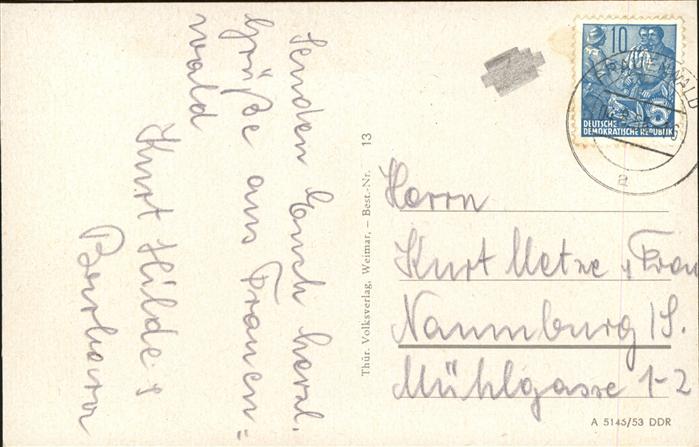 Senden Euch herzl.
Grüße aus Frauen=
wald
Kurt Hilde &
Barbara
Thür. Volksverlag, Weimar. – Best.-Nr. 13
10
DEUTSCHE
DEMOKRATISCHE REPUBLIK
a
Herrn
Kurt Metze u. Frau
Naumburg/S.
Mühlgasse 1-2
A 5145/53 DDR